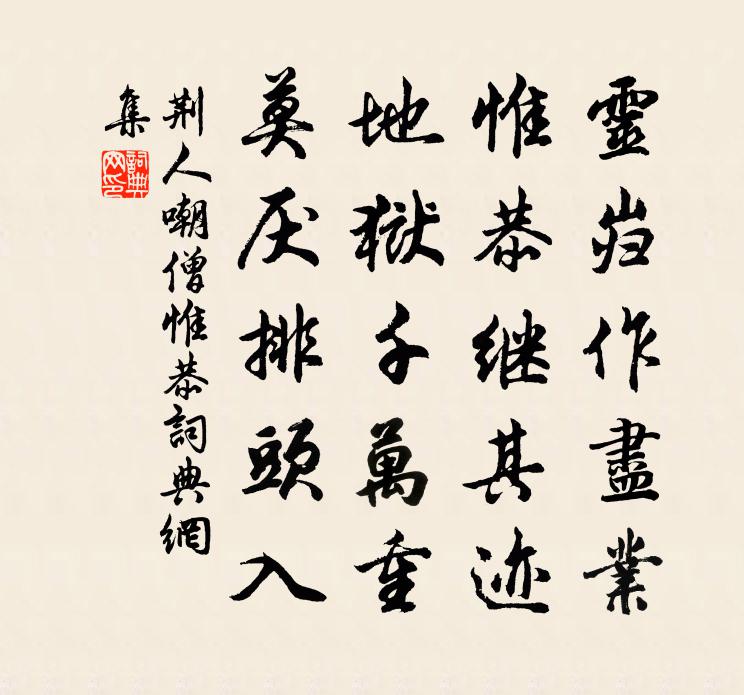 靈岿作盡業
惟恭继其迹
地獄千萬重
莫厌排頭入
荆人嘲僧惟恭詞典網
集
詞典
网印